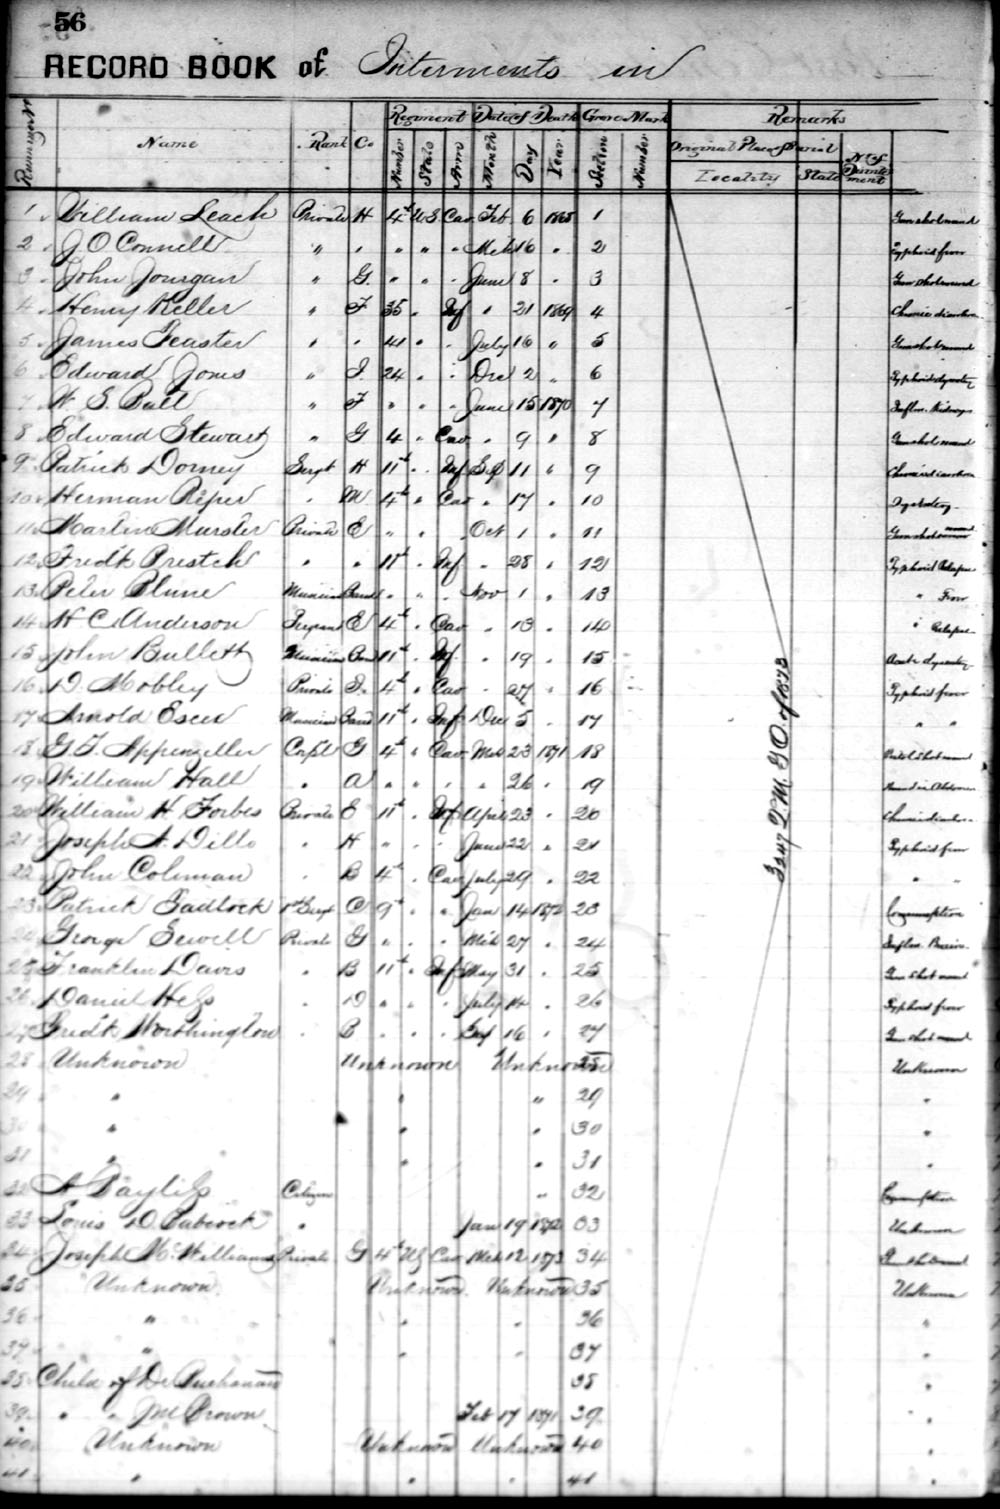 56
RECORD BOOK of Interments in
Regiment Date of Death Grave Mark Remarks
Name Rank Co Number State Arm Month Day Year Section Number Original Place of Burial No of
Locality State
1 William Leach Private H 4th U S Cav Feb 6 1868 1 Gun shot wound
2 J O Connell " " " " " Mch 16 " 2 Typhoid fever
3 John Jourgan " G. " " " June 8 " 3 Gun shot wound
4 Henry Keller " F 35 " Inf " 21 1869 4 Chronic diarrhoea
5 James Feaster " " 41 " " July 16 " 5 Gun shot wound
6 Edward Jones " I. 24 " " Dec 2 " 6
7 W. S. Ball " F " " " June 15 1870 7 Inflm. Kidneys
8 Edward Stewart " G 4 " Cav " 9 " 8 Gun shot wound
9 Patrick Dorney Sergt H 11th " Inf Sep 11 " 9 Chronic diarrhoea
10 Herman Piper " M 4th " Cav " 17 " 10 Dysentery
11 Martin Murster Private E " " " Oct 1 " 11 Gun shot wound
12 Fredk Prestch " " 11th " Inf " 28 " 12 Typhoid Relapse
13 Peter Blume Musician Band " " " Nov 1 " 13 " Fever
14 H C. Anderson E 4th " Cav " 13 " 14 " Relapse
15 John Bullett Musician Band 11th " Inf " 19 " 15 Acute dysentery
16 D. Mobley Private I. 4th " Cav " 27 " 16 Typhoid fever
17 Arnold Escer Musician Band 11th " Inf Dec 5 " 17 " "
18 G. T. Appenzeller Corpl G 4th " Cav Mch 23 1871 18 Pistol shot wound
19 William Hall " A " " " " 26 " 19 Wound in Abdomen
20 William H. Forbes Private E 11th " Inf April 23 " 20
21 Joseph A. Dills " H " " " June 22 " 21 Typhoid fever
22 John Coleman " B 4th " Cav July 29 " 22 " "
23 Patrick Tadlock 1st Sergt C 9th " " Jan 14 1872 23 Consumption
24 George Sewell Private G " " " Mch 27 " 24
25 Franklin Davis " B 11th " Inf May 31 " 25 Gun shot wound
26 Daniel Hels " D " " " July 14 " 26 Typhoid fever
27 Fredk Worthington " B " " " Sep 16 " 27 Gun shot wound
28 Unknown Unknown Unknown 28 Unknown
29 " " " 29 "
30 " " " 30 "
31 " " " 31 "
32 A Citizen " 32 Consumption
33 Louis D. Babcock " Jan 19 1872 33 Unknown
34 Joseph McWilliams Private G 4th US Cav Mch 12 1873 34 Gun shot wound
35 Unknown Unknown Unknown 35 Unknown
36 " " " 36 "
37 " " " 37 "
38 Child of Dr Buchanan 38 "
39 " " Brown Feb 17 1871 39 "
40 Unknown Unknown Unknown 40 "
41 " " " 41 "
Q. M. G O of 1873